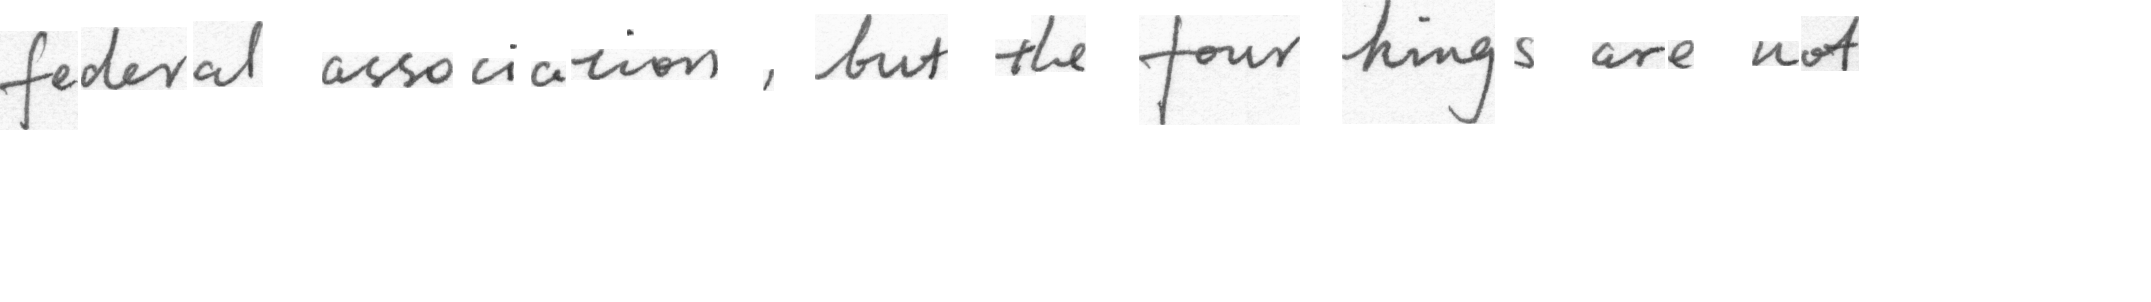 federal association, but the four kings are not